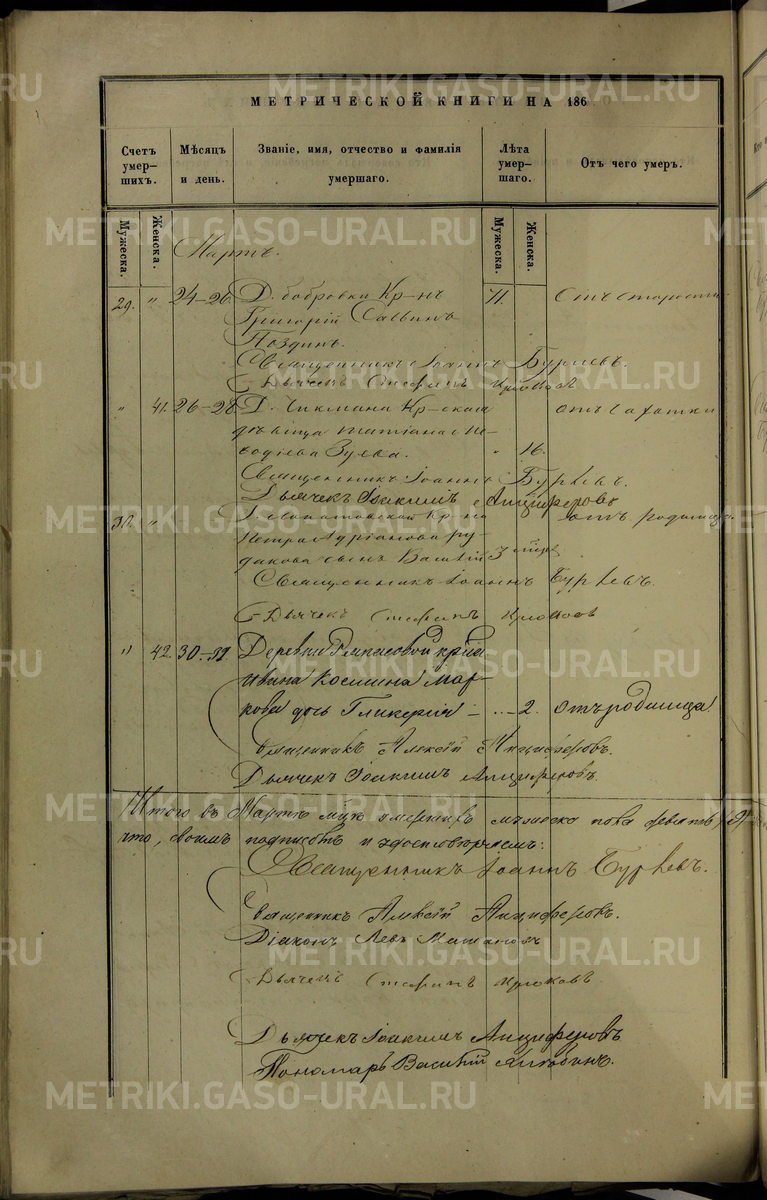 МЕТРИЧЕСКОЙ КНИГИ НА 186
Счетъ умер- шихъ.
Мѣсяцъ и день.
Званіе, имя, отчество и фамилія умершаго.
Лѣта умер- шаго.
Отъ чего умеръ.
Мужеска.
Женска.
Мужеска.
Женска.
Мартъ.
29. " 24-26. Д. бобровки Кр-нъ 71. отъ старости
Григорій Саввинъ
Поздинъ.
Священникъ Іоаннъ Бурцевъ.
Дьячекъ Стефанъ Крюковъ
" 41. 26-28. Д. Чикмана Кр-ская отъ чахотки
дѣвица Татіана
Зуева. " 16.
Священникъ Іоаннъ Бурцевъ.
Дьячекъ Іоакимъ Анциферовъ
" Кр-на отъ родимца
Петра Адріанова Ру-
дакова сынъ Василій 3
Священникъ Іоаннъ Бурцевъ.
Дьячекъ Стефанъ Крюковъ
" 42. 30-31. Деревни
Ивана Космина Мар-
кова дочь Гликерія 2. отъ родимца
Священникъ Алексій Анциферовъ.
Дьячекъ Іоакимъ Анциферовъ.
Итого въ Мартѣ м-цѣ умершихъ мужеска пола девять
что, своимъ подписомъ и удостовѣряемъ:
Священникъ Іоаннъ Бурцевъ.
Священникъ Алексій Анциферовъ.
Діаконъ Левъ
Дьячекъ Стефанъ Крюковъ
Дьячекъ Іоакимъ Анциферовъ
Пономарь Василій
METRIKI.GASO-URAL.RU